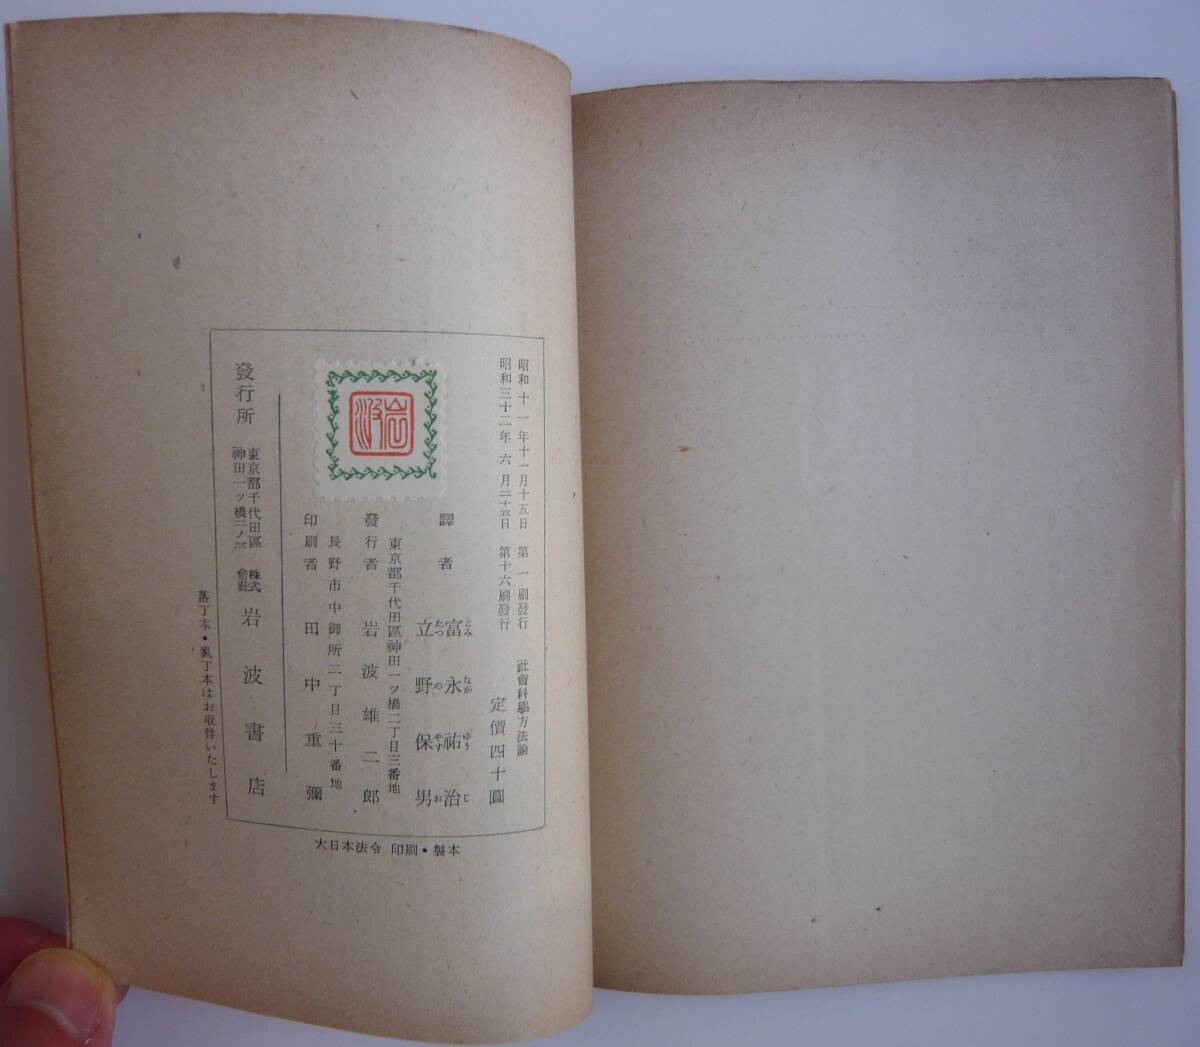 昭和十一年十一月十五日 第一刷發行
昭和三十二年六月二十五日 第十六刷發行
社會科學方法論
定價四十圓
譯者 富永祐治
とみ なが ゆう じ
立野保男
たつ の やす お
東京都千代田區神田一ッ橋二丁目三番地
發行者 岩波雄二郎
長野市中御所二丁目三十番地
印刷者 田中重彌
岩波
發行所
東京都千代田區
神田一ッ橋二ノ三
株式
會社
岩波書店
落丁本・亂丁本はお取替いたします
大日本法令 印刷・製本